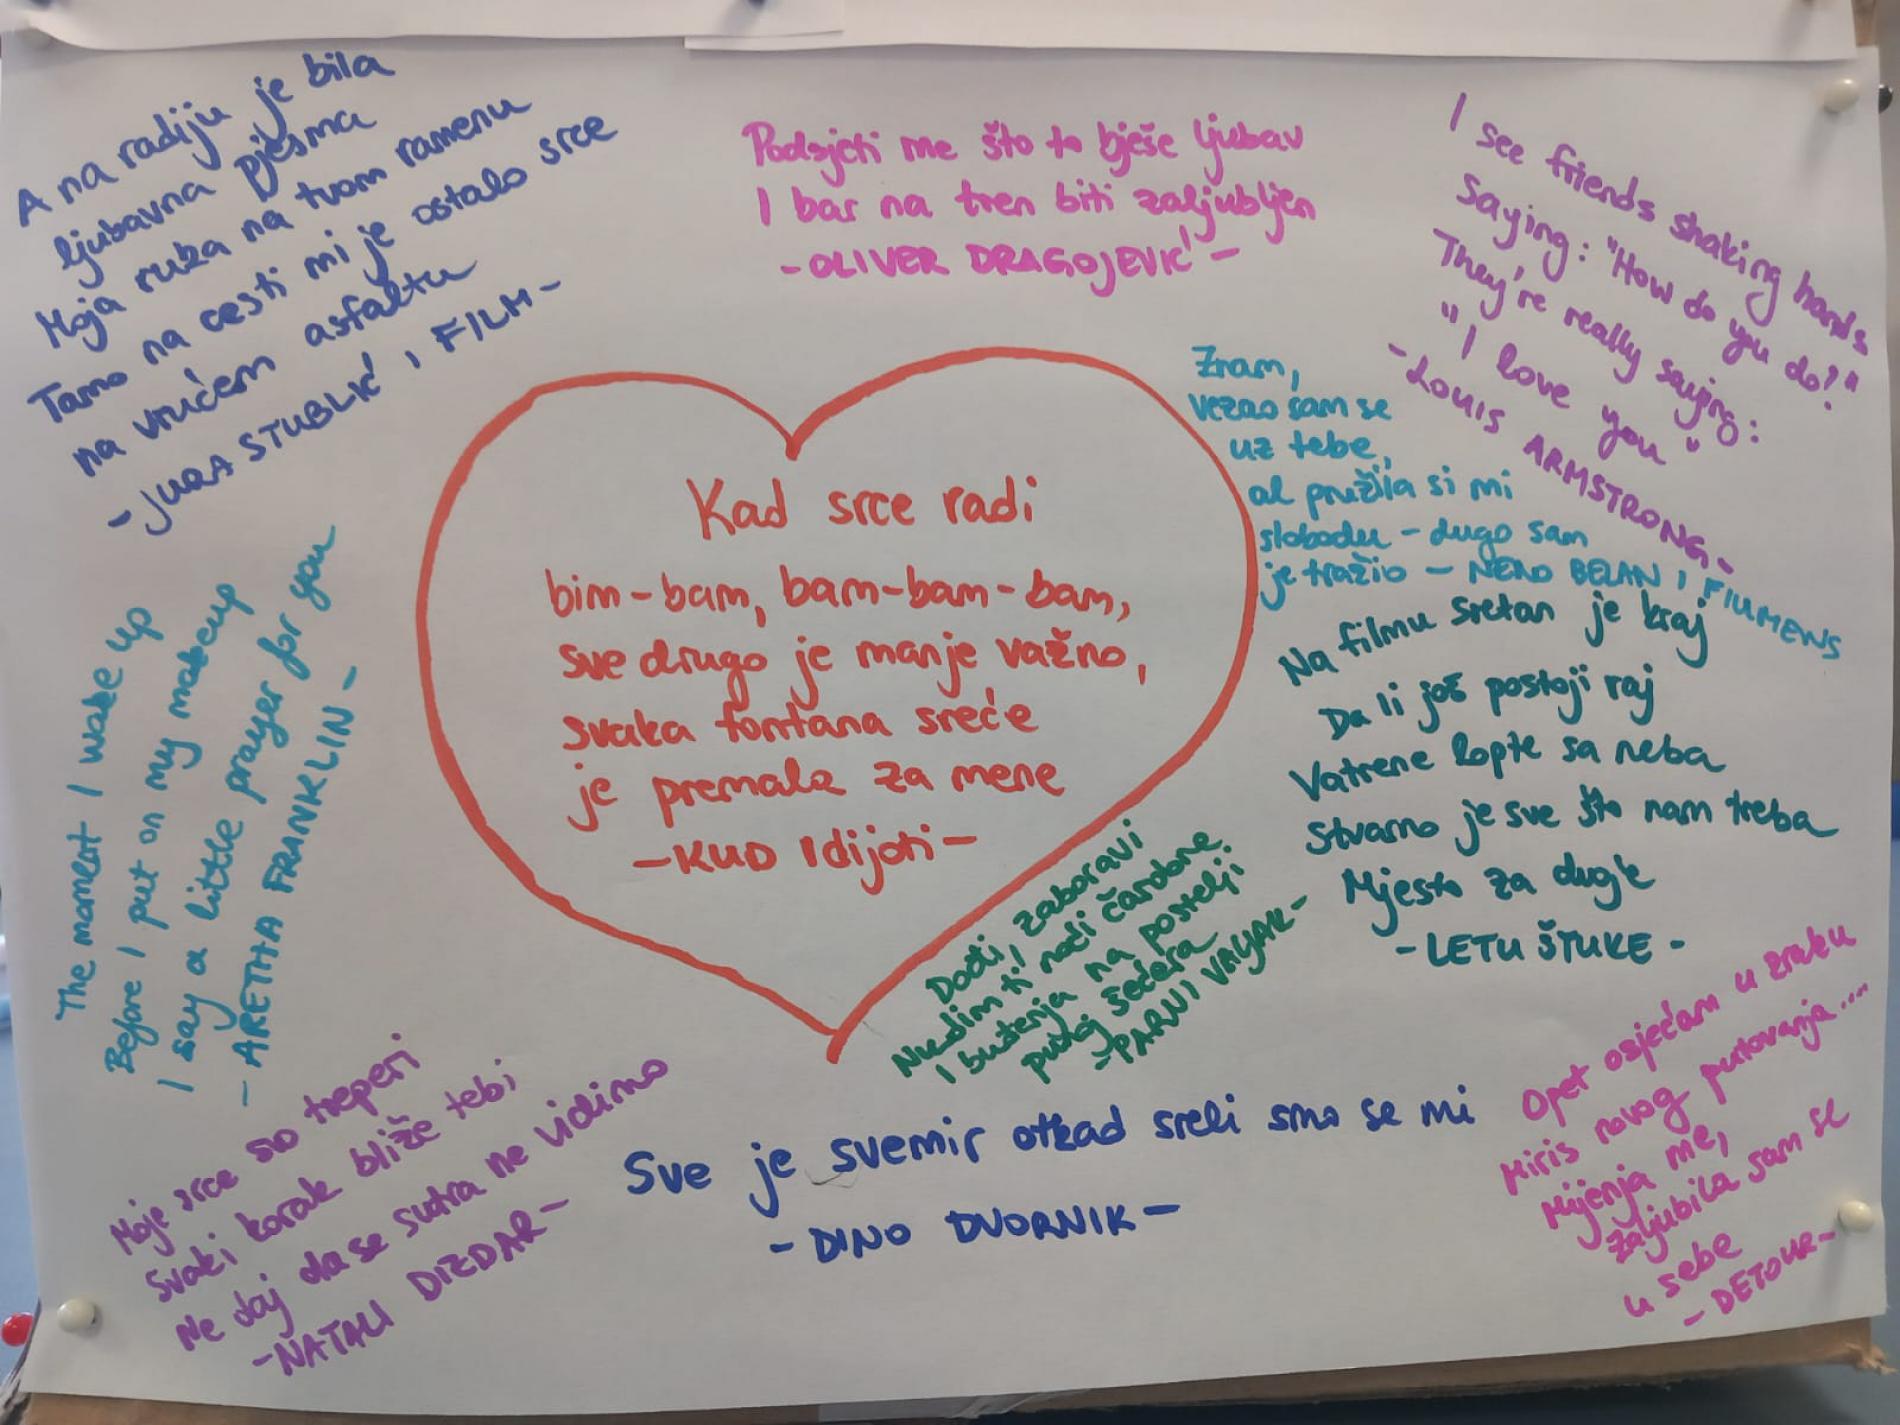 A na radiju je bila
ljubavna pjesma
Moja ruža na tvom ramenu
Tamo na cesti mi je ostalo srce
na vrućem asfaltu
-JURA STUBLIĆ I FILM-
Podsjeti me što to bješe ljubav
I bar na tren biti zaljubljen
-OLIVER DRAGOJEVIĆ-
I see friends shaking hands
Saying: "How do you do?"
They're really saying:
"I love you"
-LOUIS ARMSTRONG-
Znam,
vezao sam se
uz tebe,
al pružila si mi
slobodu - dugo sam
je tražio - NENO BELAN I FIUMENS
Kad srce radi
bim-bam, bam-bam-bam,
sve drugo je manje važno,
svaka fontana sreće
je premala za mene
-KUD Idijoti-
Na filmu sretan je kraj
Da li još postoji raj
Vatrene lopte sa neba
Stvarno je sve što nam treba
Mjesto za dvoje
-LETU ŠTUKE-
The moment I wake up
Before I put on my makeup
I say a little prayer for you
-ARETHA FRANKLIN-
Dođi, zaboravi
Nudim ti noći čarobne
I buđenja na postelji
punoj šećera
-PARNI VALJAK-
Moje srce sto treperi
Svaki korak bliže tebi
Ne daj da se sutra ne vidimo
-NATALI DIZDAR-
Sve je svemir otkad sreli smo se mi
-DINO DVORNIK-
Opet osjećam u zraku
Miris novog putovanja....
Mijenja me,
zaljubila sam se
u sebe
-DETOUR-